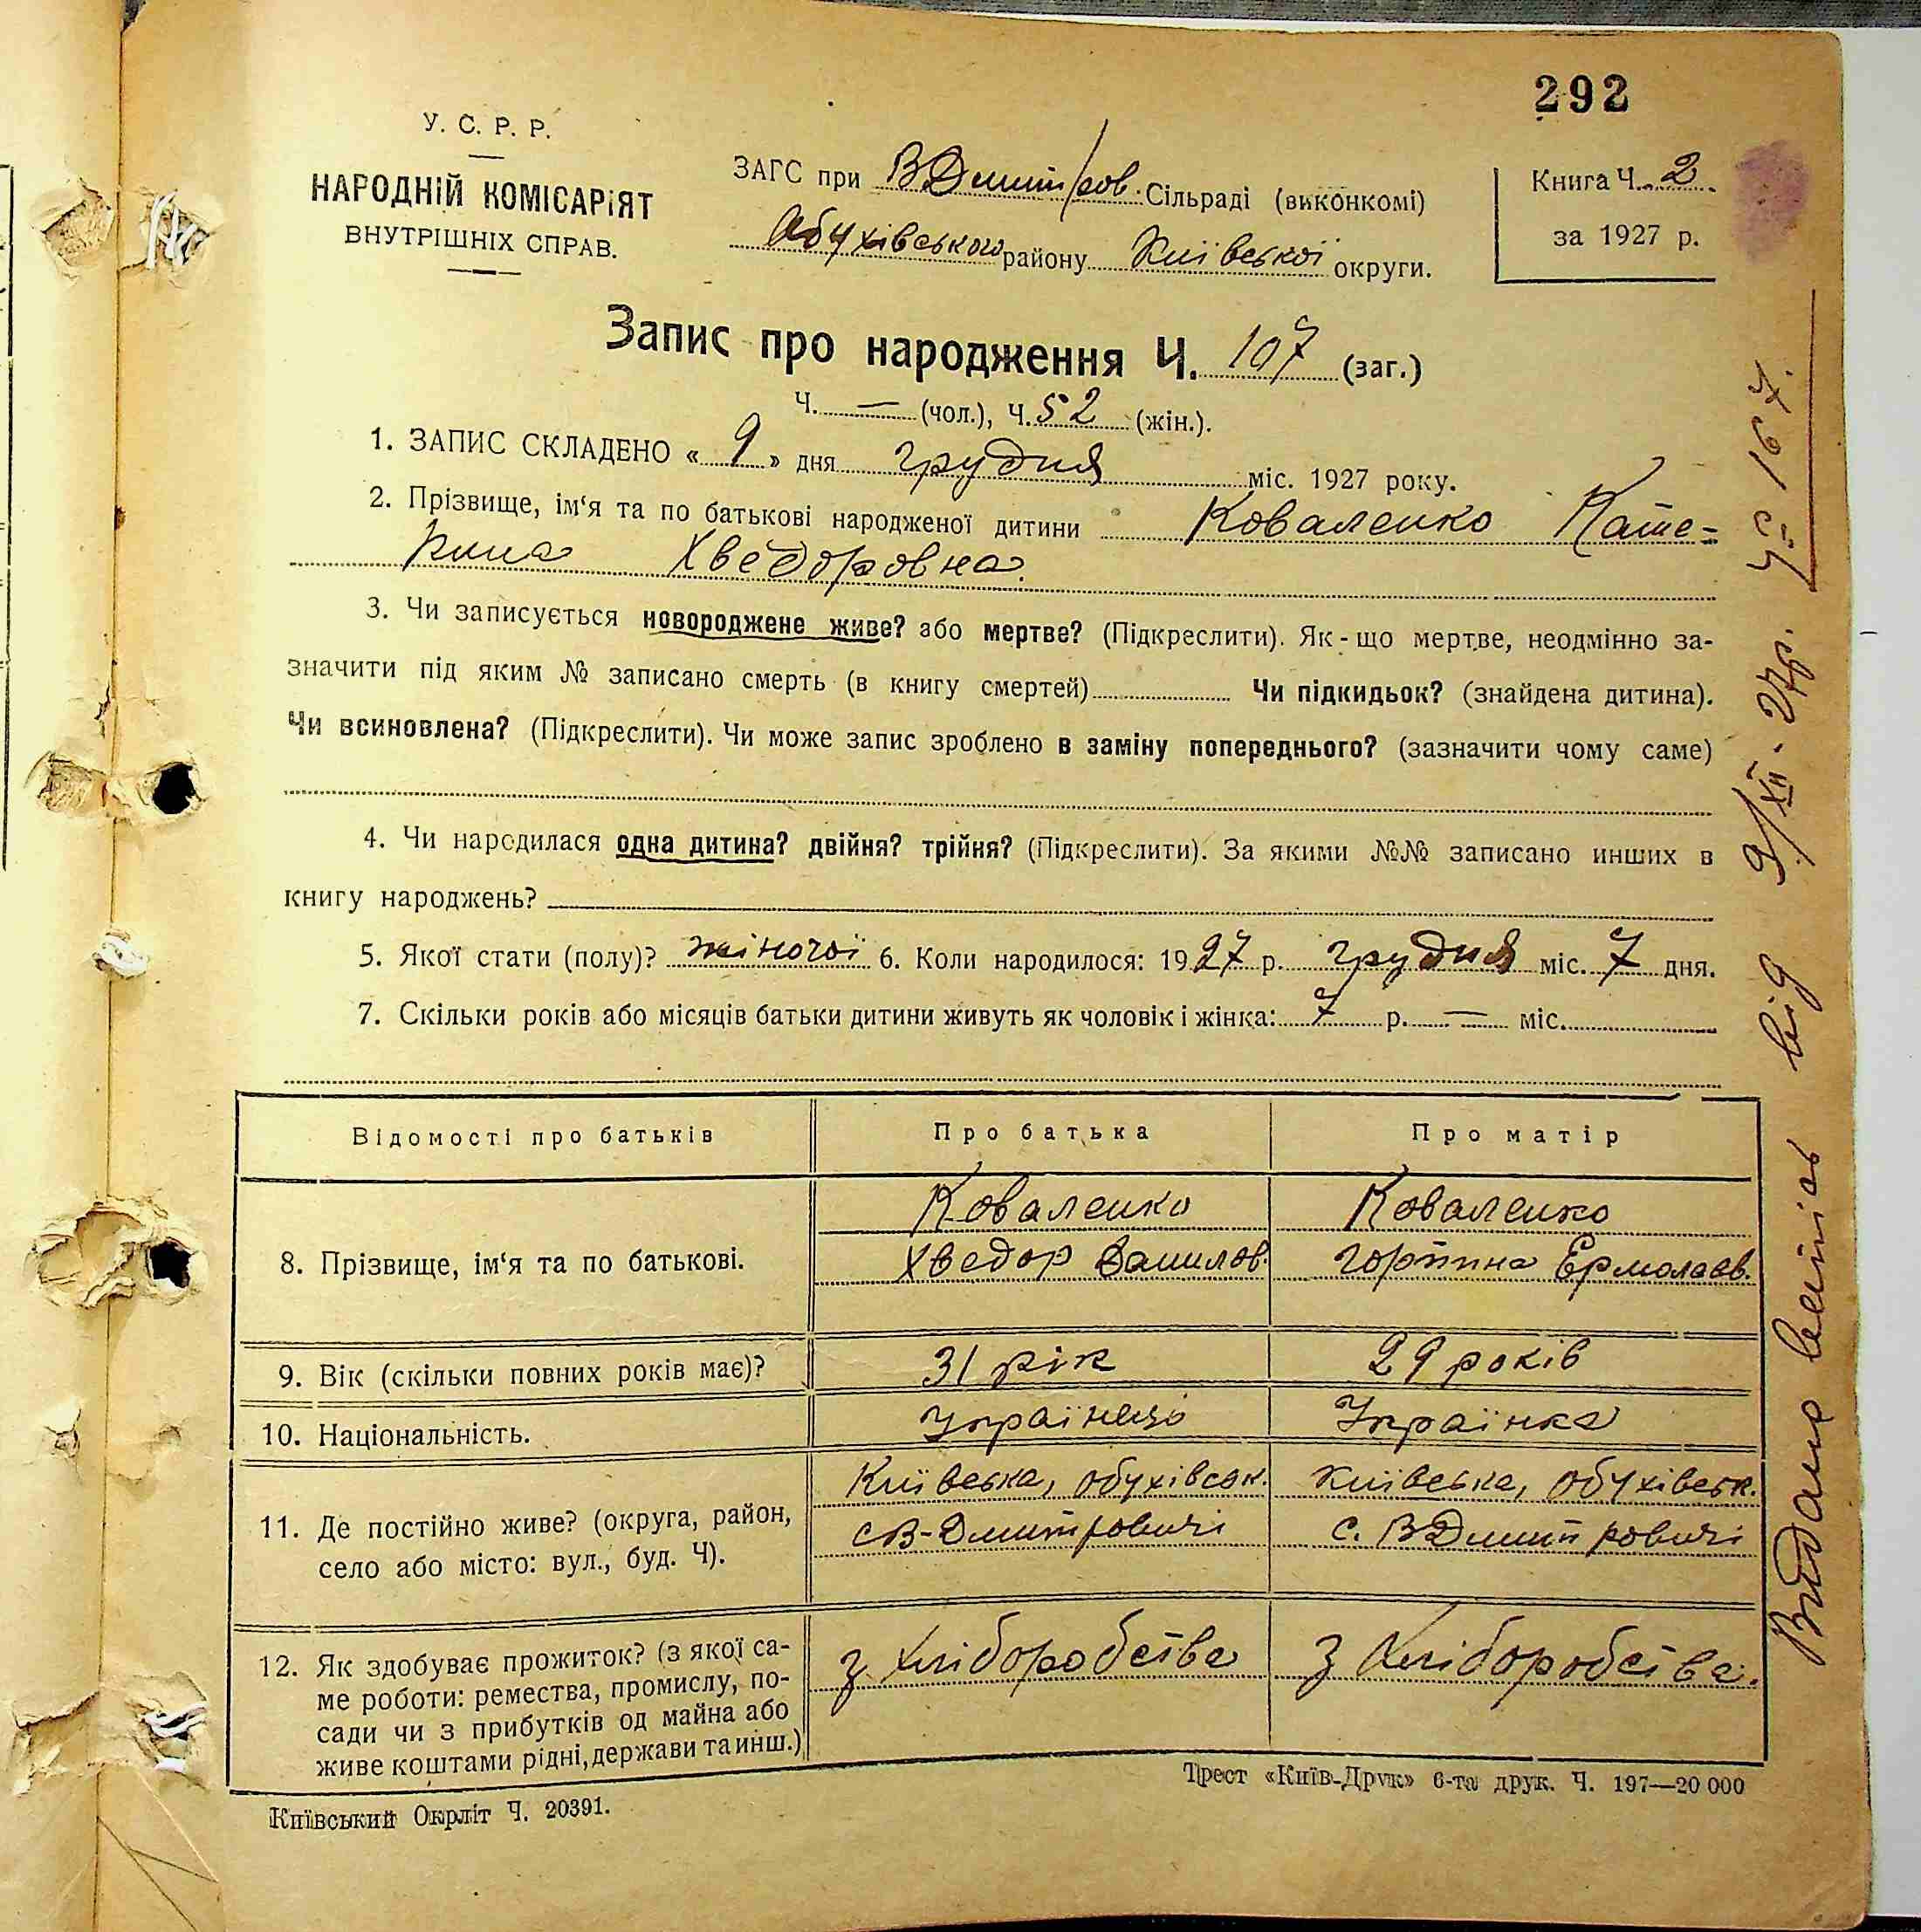 292
У. С. Р. Р.
НАРОДНІЙ КОМІСАРІЯТ
ВНУТРІШНІХ СПРАВ.
ЗАГС при ВДмитров. Сільраді (виконкомі)
Обухівського району Київської округи.
Книга Ч. 2.
за 1927 р.
Запис про народження Ч. 107 (заг.)
Ч. — (чол.), Ч. 52 (жін.).
1. ЗАПИС СКЛАДЕНО « 9 » дня грудня міс. 1927 року.
2. Прізвище, ім‘я та по батькові народженої дитини Коваленко Кате=
рина Хведоровна.
3. Чи записується новороджене живе? або мертве? (Підкреслити). Як-що мертве, неодмінно за-
значити під яким № записано смерть (в книгу смертей) Чи підкидьок? (знайдена дитина).
Чи всиновлена? (Підкреслити). Чи може запис зроблено в заміну попереднього? (зазначити чому саме)
4. Чи народилася одна дитина? двійня? трійня? (Підкреслити). За якими №№ записано инших в
книгу народжень?
5. Якої стати (полу)? жіночої 6. Коли народилося: 1927 р. грудня міс. 7 дня.
7. Скільки років або місяців батьки дитини живуть як чоловік і жінка: 7 р. — міс.
Відомості про батьків Про батька Про матір
8. Прізвище, ім‘я та по батькові.
Коваленко
Хведор Данилов.
Коваленко
Горпина Ермолаєв.
9. Вік (скільки повних років має)? 31 рік 29 років
10. Національність. Українець Українка
11. Де постійно живе? (округа, район,
село або місто: вул., буд. Ч).
Київська, обухівськ.
с В-Дмитровичі
Київська, обухівськ.
с. ВДмитровичі
12. Як здобуває прожиток? (з якої са-
ме роботи: ремества, промислу, по-
сади чи з прибутків од майна або
живе коштами рідні, держави та инш.)
з хліборобства
з хліборобства.
Київський Окрліт Ч. 20391.
Трест «Київ-Друк» 6-та друк. Ч. 197—20 000
Видано від 9/XII-27р. 167.